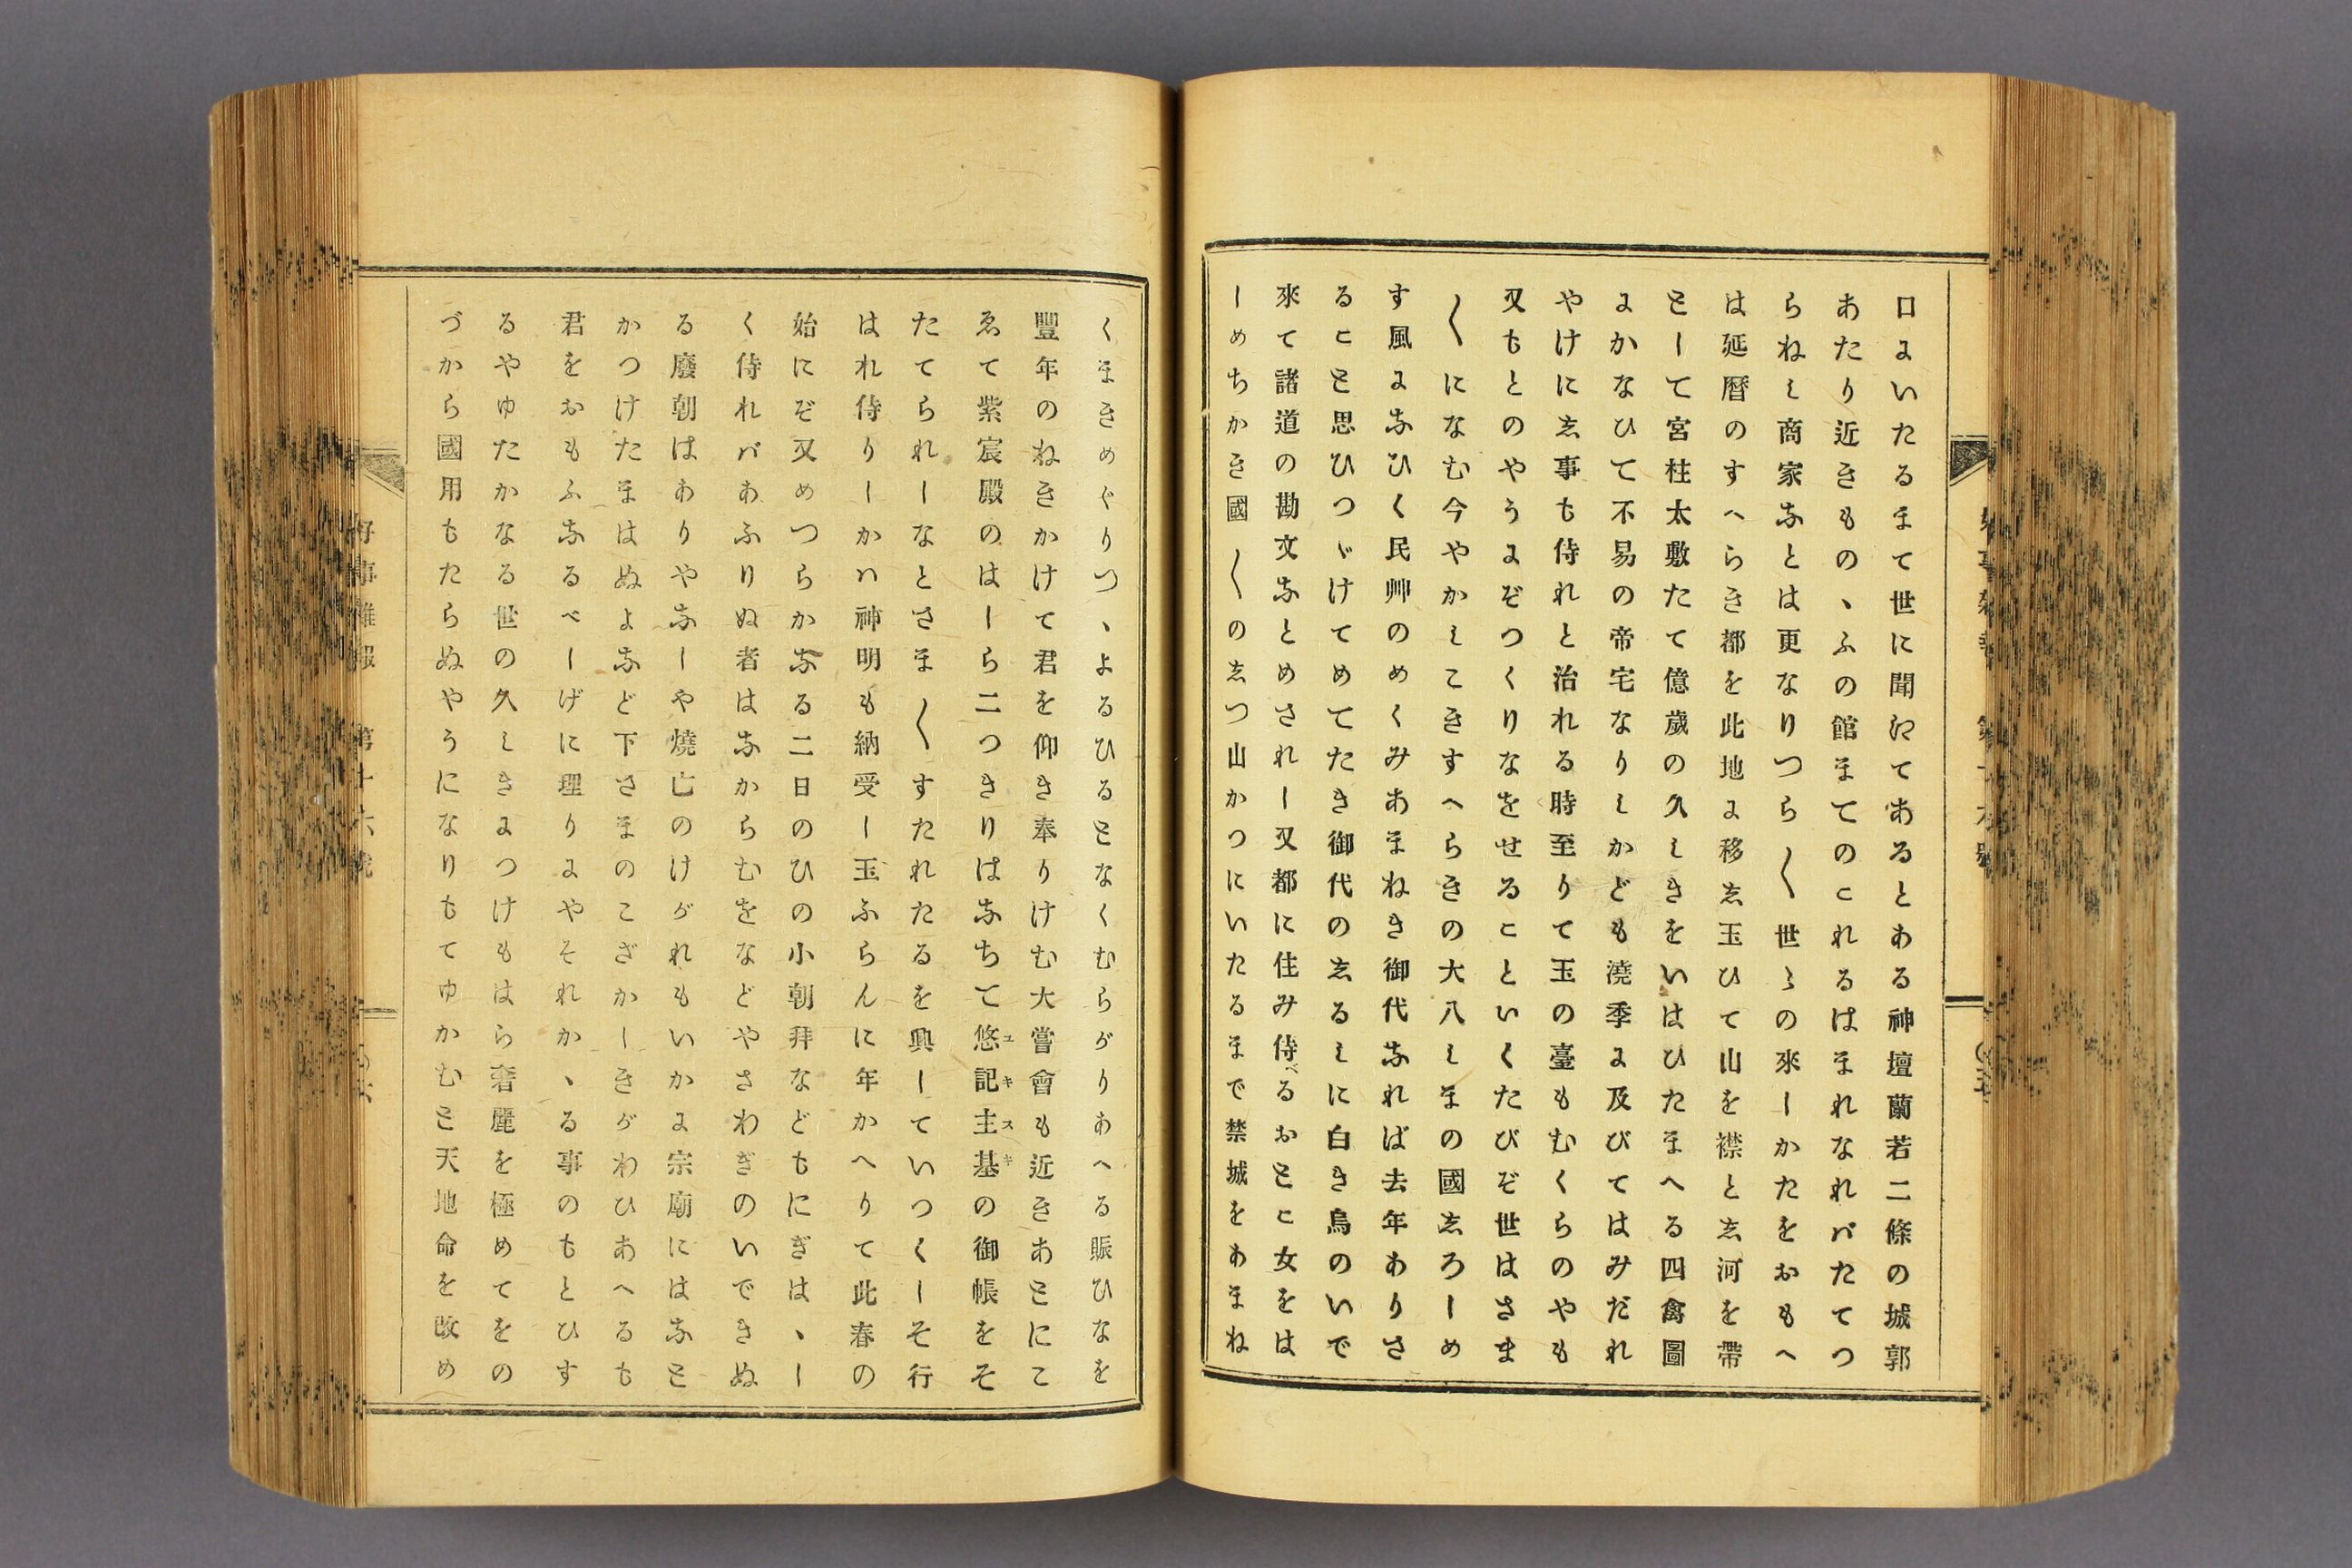 口にいたるまて世に聞えてあるとある神壇蘭若二條の城郭
あたり近きもの、ふの館まてのこれるはまれなれバたてつ
らねし商家なとは更なりつら〳〵世ゝの來しかたをおもへ
は延暦のすへらき都を此地に移し玉ひて山を襟とし河を帶
として宮柱太敷たて億歲の久しきをいはひたまへる四禽圖
にかなひて不易の帝宅なりしかども澆季に及びてはみだれ
やけにし事も侍れと治れる時至りて玉の臺もむくらのやも
又もとのやうにぞつくりなをせることいくたびぞ世はさま
〳〵になむ今やかしこきすへらきの大八しまの國しろしめ
す風になひく民艸のめくみあまねき御代なれば去年ありさ
ること思ひつゞけてめてたき御代のしるしに白き鳥のいで
來て諸道の勘文なとめされし又都に住み侍べるおとこ女をは
しめちかき國〳〵のしつ山かつにいたるまで禁城をあまね
くまきめぐりつ、よるひるとなくむらがりあへる賑ひなを
豐年のねきかけて君を仰き奉りけむ大嘗會も近きあとにこ
ゑて紫宸殿のはしら二つきりはなちて悠記主基の御帳をそ
ユキスキ
たてられしなとさま〳〵すたれたるを興していつくしそ行
はれ侍りしかハ神明も納受し玉ふらんに年かへりて此春の
始にぞ又めつらかなる二日のひの小朝拜などもにぎは、し
く侍れバあふりぬ者はなからむをなどやさわぎのいできぬ
る廢朝はありやなしや燒亡のけがれもいかに宗廟にはなと
かつけたまはぬよなど下さまのこざかしきがわひあへるも
君をおもふなるべしげに理りにやそれか、る事のもとひす
るやゆたかなる世の久しきにつけもはら奢麗を極めてをの
づから國用もたらぬやうになりもてゆかむと天地命を改め
好事雜報　第十六號